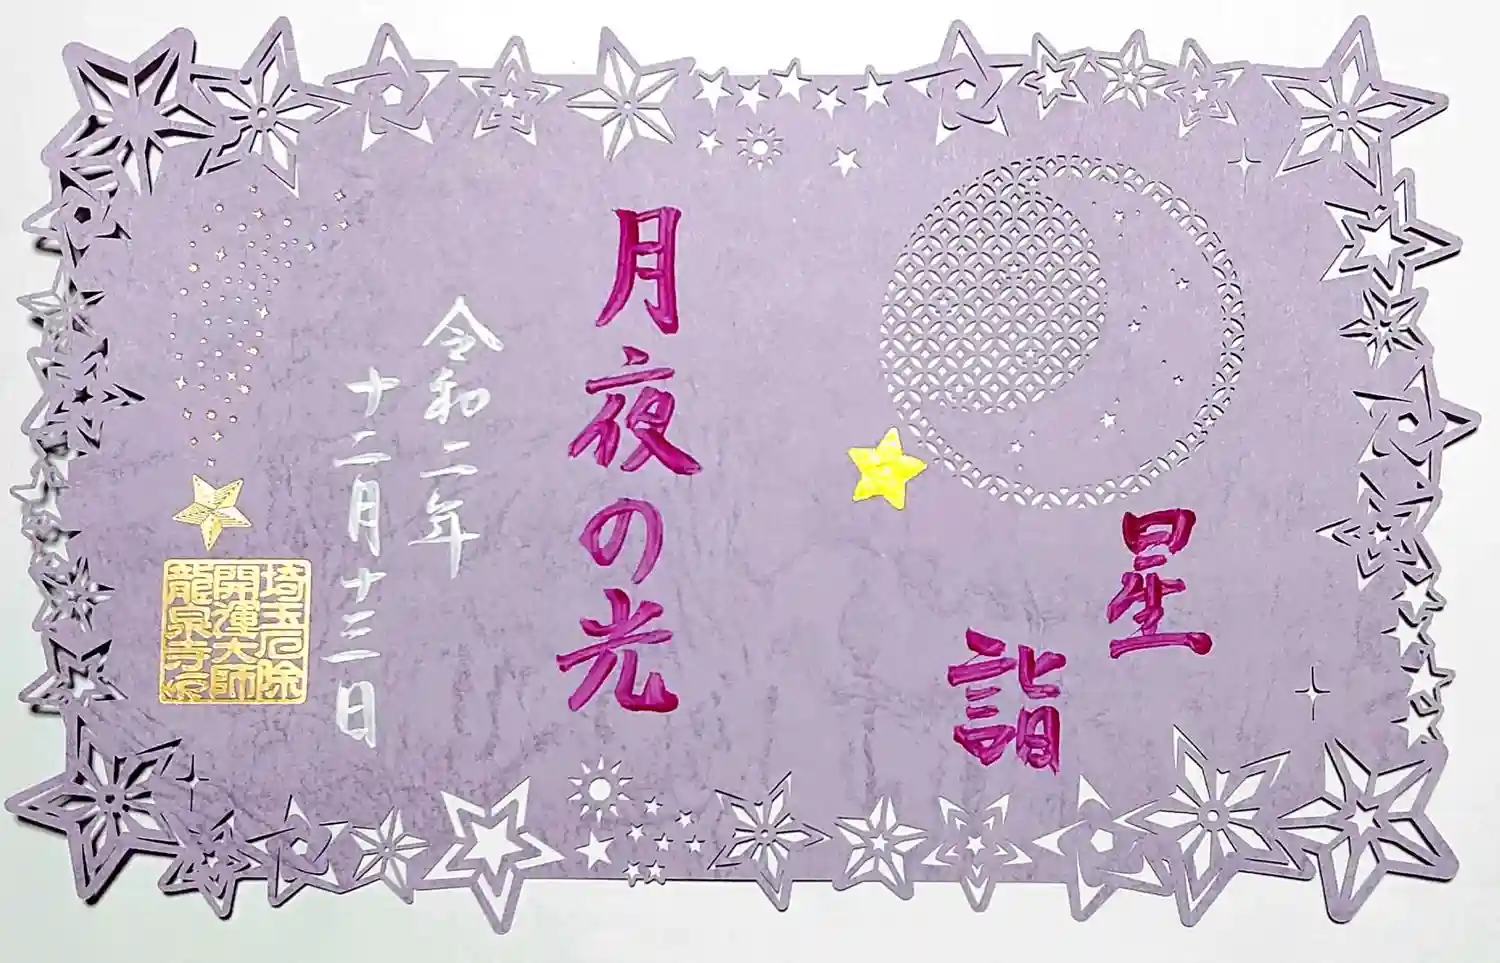 星
詣
月夜の光
令和二年
十二月十三日
埼玉厄除
開運大師
龍泉寺印